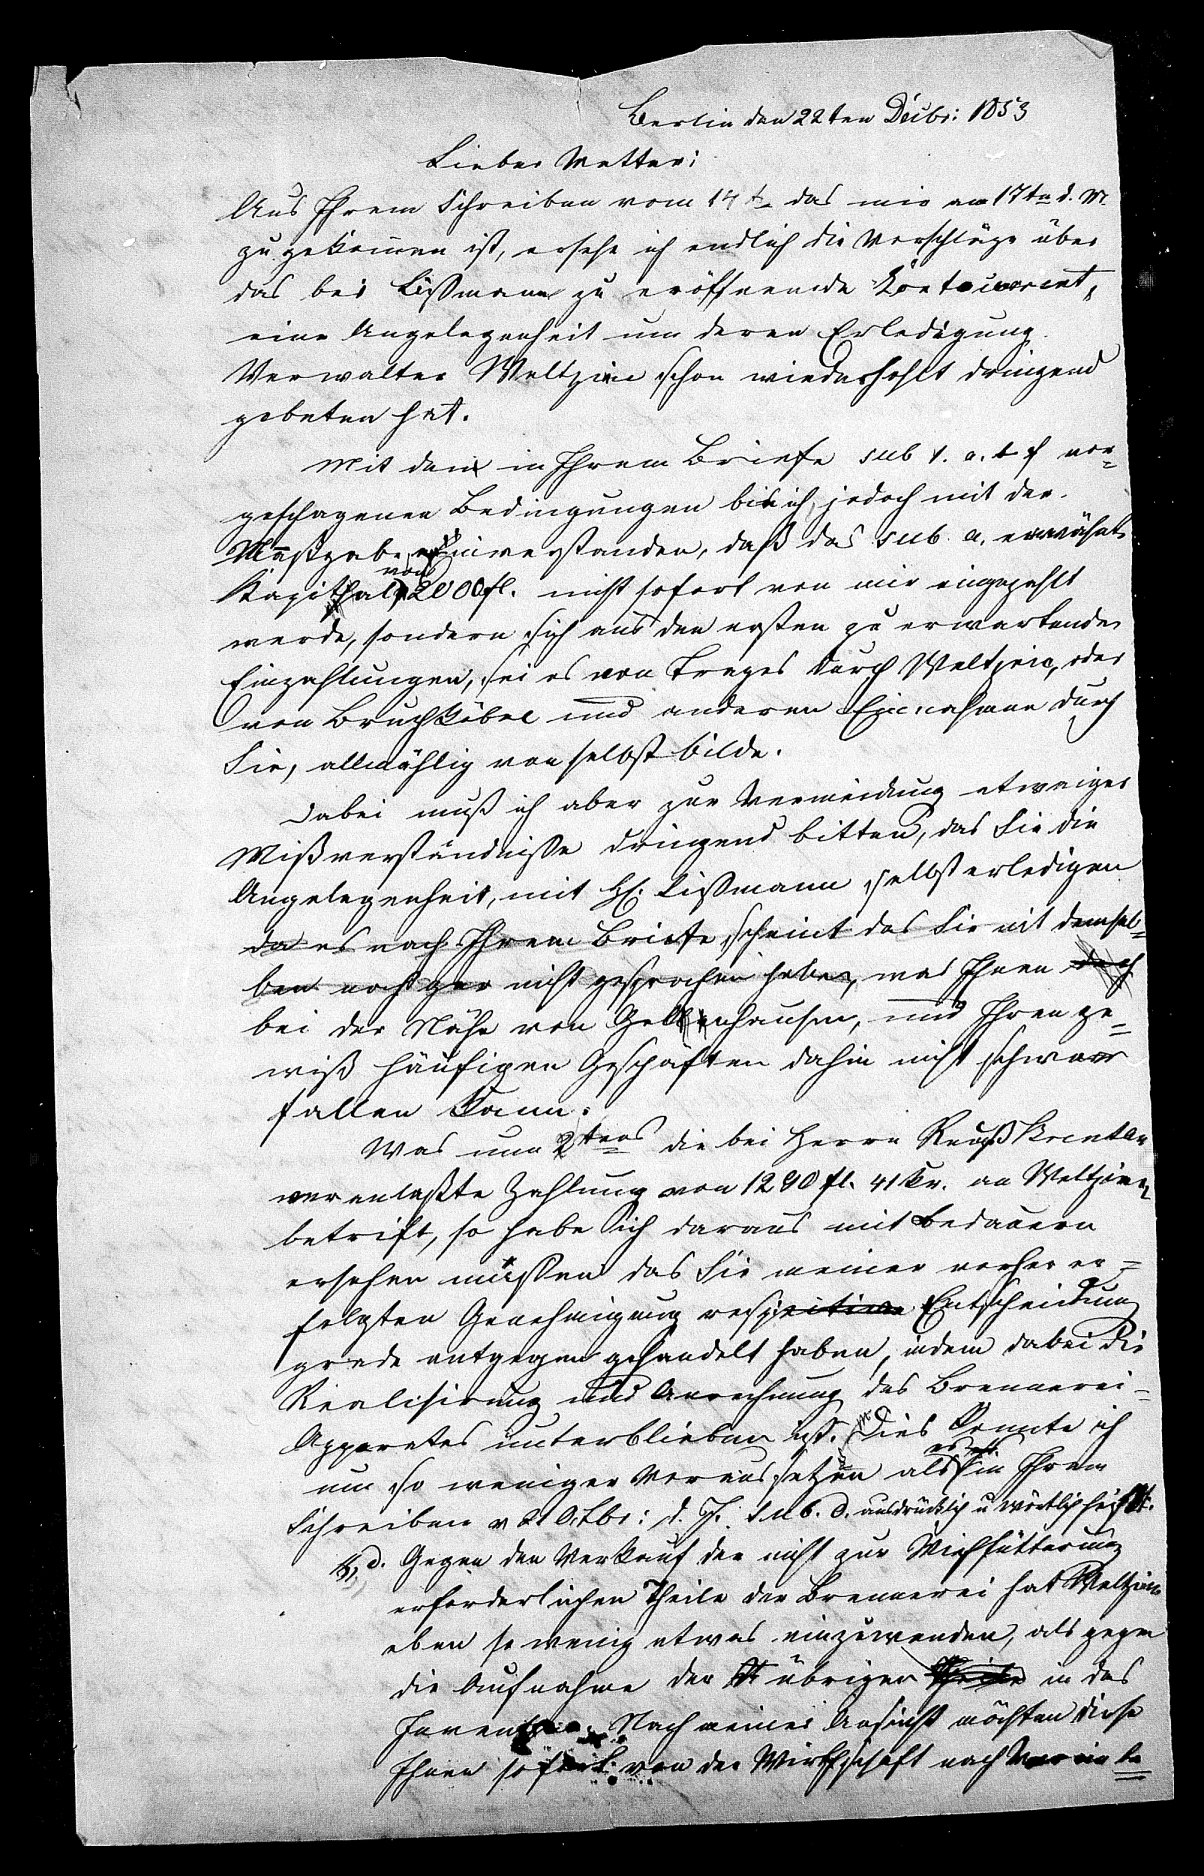 Berlin den 22ten Decbr: 1853
Lieber Vetter!
Aus Ihrem Schreiben vom 14t das mir am 17ten d. M
zugekommen ist, ersehe ich endlich die Vorschläge über
das bei Lißmann zu eröffnende Contocurrent,
eine Angelegenheit um deren Erledigung
Verwalter Weltzien schon wiederhohlt dringend
gebeten hat.
Mit den in Ihrem Briefe sub 1. a. vor-
geschlagenen Bedingungen bin ich, jedoch mit der
Maßgabe einverstanden, daß das sub. a. erwähnte
Kapithal von 2000 fl. nicht sofort von mir eingezahlt
werde, sondern sich aus den ersten zu erwartenden
Einzahlungen, sei es von Trages durch Weltzien, oder
von Bruchköbel und anderen Einnahmen durch
Sie, allmählig von selbst bilde.
Dabei muß ich aber zur Vermeidung etwaiger
Mißverständniße dringend bitten, das Sie die
Angelegenheit, mit H. Lißmann selbst erledigen
da es nach Ihrem Briefe scheint das Sie mit demsel-
ben noch gar nicht gesprochen haben, was Ihnen doch
bei der Nähe von Gelnhausen, und Ihren ge-
wiß häufigen Geschäften dahin nicht schwer
fallen kann.
Was nun 2tens die bei Herrn
veranlaßte Zahlung von 1290 fl. 41 Kr. an Weltzien
betrift, so habe ich daraus mit Bedauern
ersehen müßen das Sie meiner vorher er-
folgten Genehmigung resp Entscheidung
grade entgegen gehandelt haben, indem dabei die
Realisirung und Anrechnung des Brennerei-
Apparates unterblieben ist. Dies konnte ich
um so weniger voraussetzen als es in Ihrem
Schreiben v 21 Octbr: d. J. sub. d. ausdrücklich u wörtlich heißt.
d. Gegen den Verkauf der nicht zur Viehfütterung
erforderlichen Theile der Brennerei hat Weltzien
eben so wenig etwas einzuwenden, als gegen
die Aufnahme der übrigen Theile in das
Inventar. Nach meiner Ansicht möchten diese
Ihnen sofort von der Wirthschaft nach